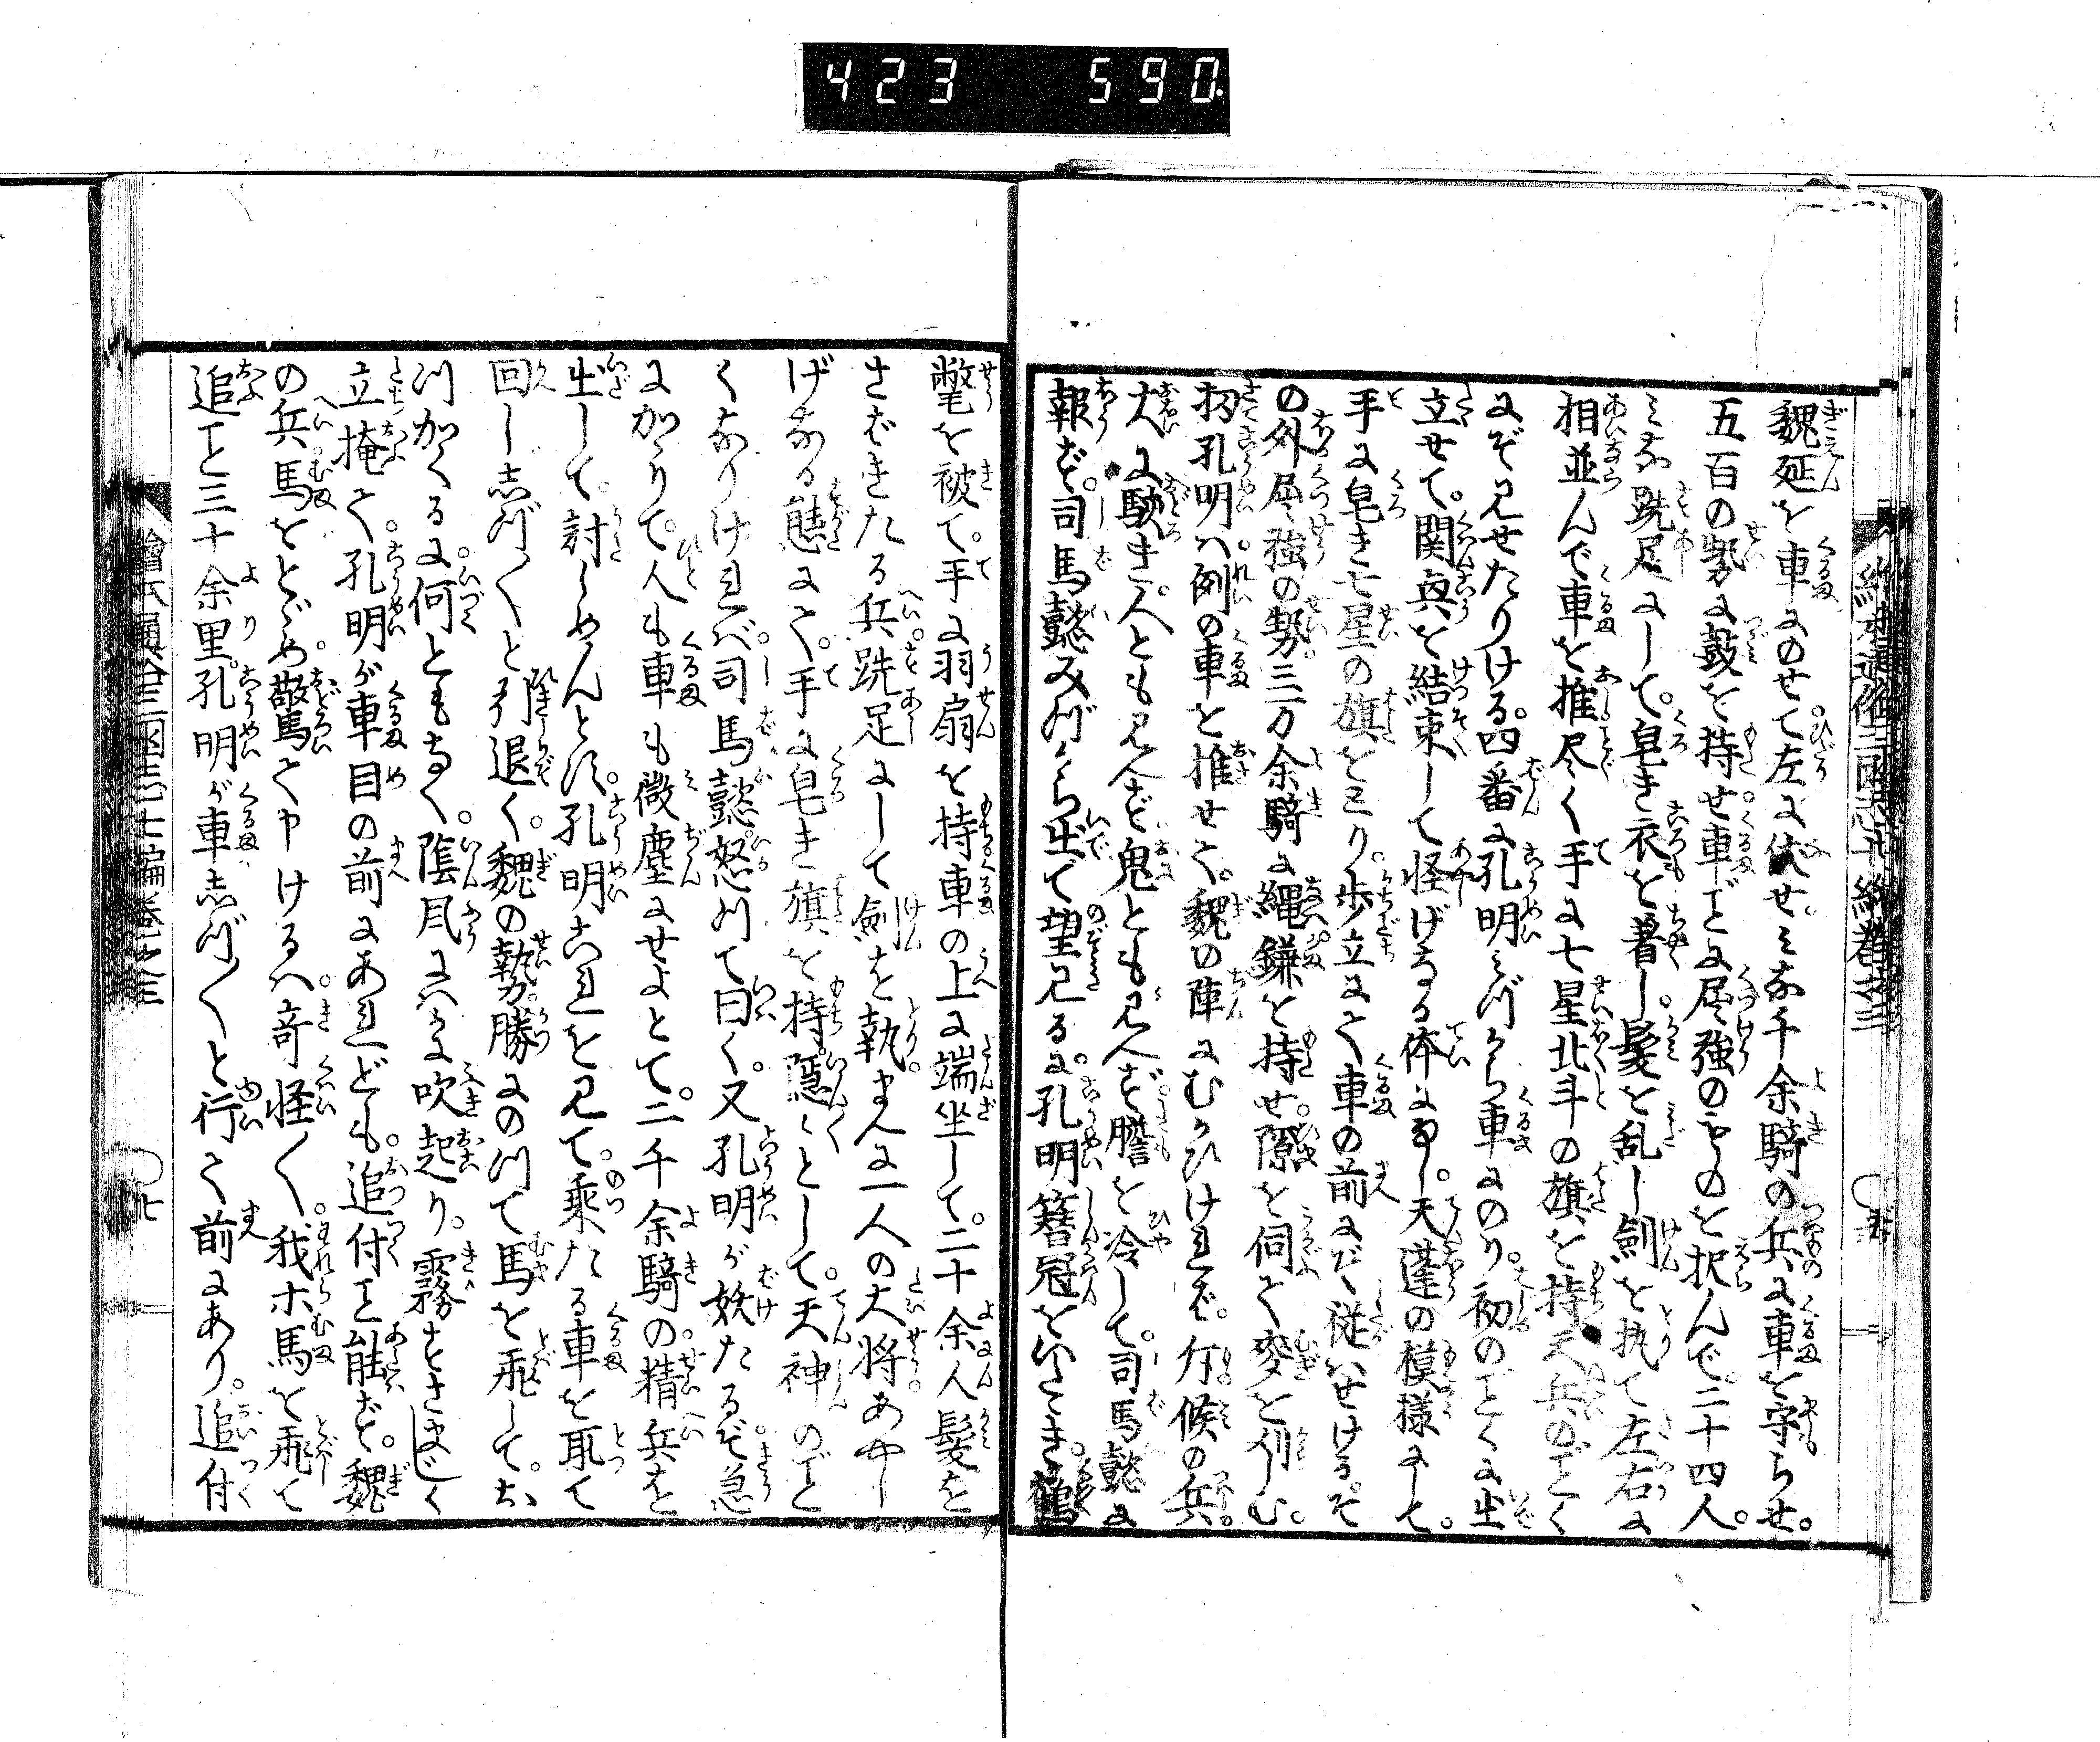 423 590
魏延を車にのせて左に伏せ。ミな千余騎の兵に車を守らせ。
五百の勢に鼓を持せ車ごとに屈強のものを択んで。二十四人。
ミな跣足にして。皀き衣を着し。髪を乱し剣を执て左右に
相並んで車を推尽く手に七星北斗の旗を持天兵のごとく
にぞ見せたりける。四番に孔明ミづから車にのり。初のごとくに出
立せて。関興を結束して怪げなる体になし。天蓬の模様にして。
手に皀き七星の旗をとり。歩立にて車の前にぞ従ハせける。そ
の外屈強の勢三万余騎に縄鎌を持せ。隙を伺て麥を刈しむ。
扨孔明ハ。例の車を推せて。魏の陣にむかひけれバ。斥候の兵。
大に駭き。人とも見へず鬼とも見へず。膽を冷して。司馬懿に
報ず。司馬懿みづから出て望見るに。孔明簪冠をいたゞき。鶴
氅を被て。手に羽扇を持。車の上に端坐して。二十余人髪を
さばきたる兵。跣足にして剣を執。まへに一人の大将あやし
げなる態にて。手に皀き旗を持。隠〱として。天神のごと
くなりけれバ。司馬懿怒つて曰く。又孔明が妖たるぞ。急
にかゝりて。人も車も微塵にせよとて。二千余騎の精兵を
出して。討しめんとす。孔明これを見て。乗たる車を取て
回ししづ〱と引退く。魏の勢。勝にのつて馬を飛して。お
つかくるに。何ともなく。陰風にハかに吹起り。霧すさまじく
立掩て。孔明が車目の前にあれども。追付こと能ず。魏
の兵馬をとゞめ。驚て申けるハ。奇怪〱。我ホ馬を飛て
追こと三十余里。孔明が車しづ〱と行て前にあり。追付